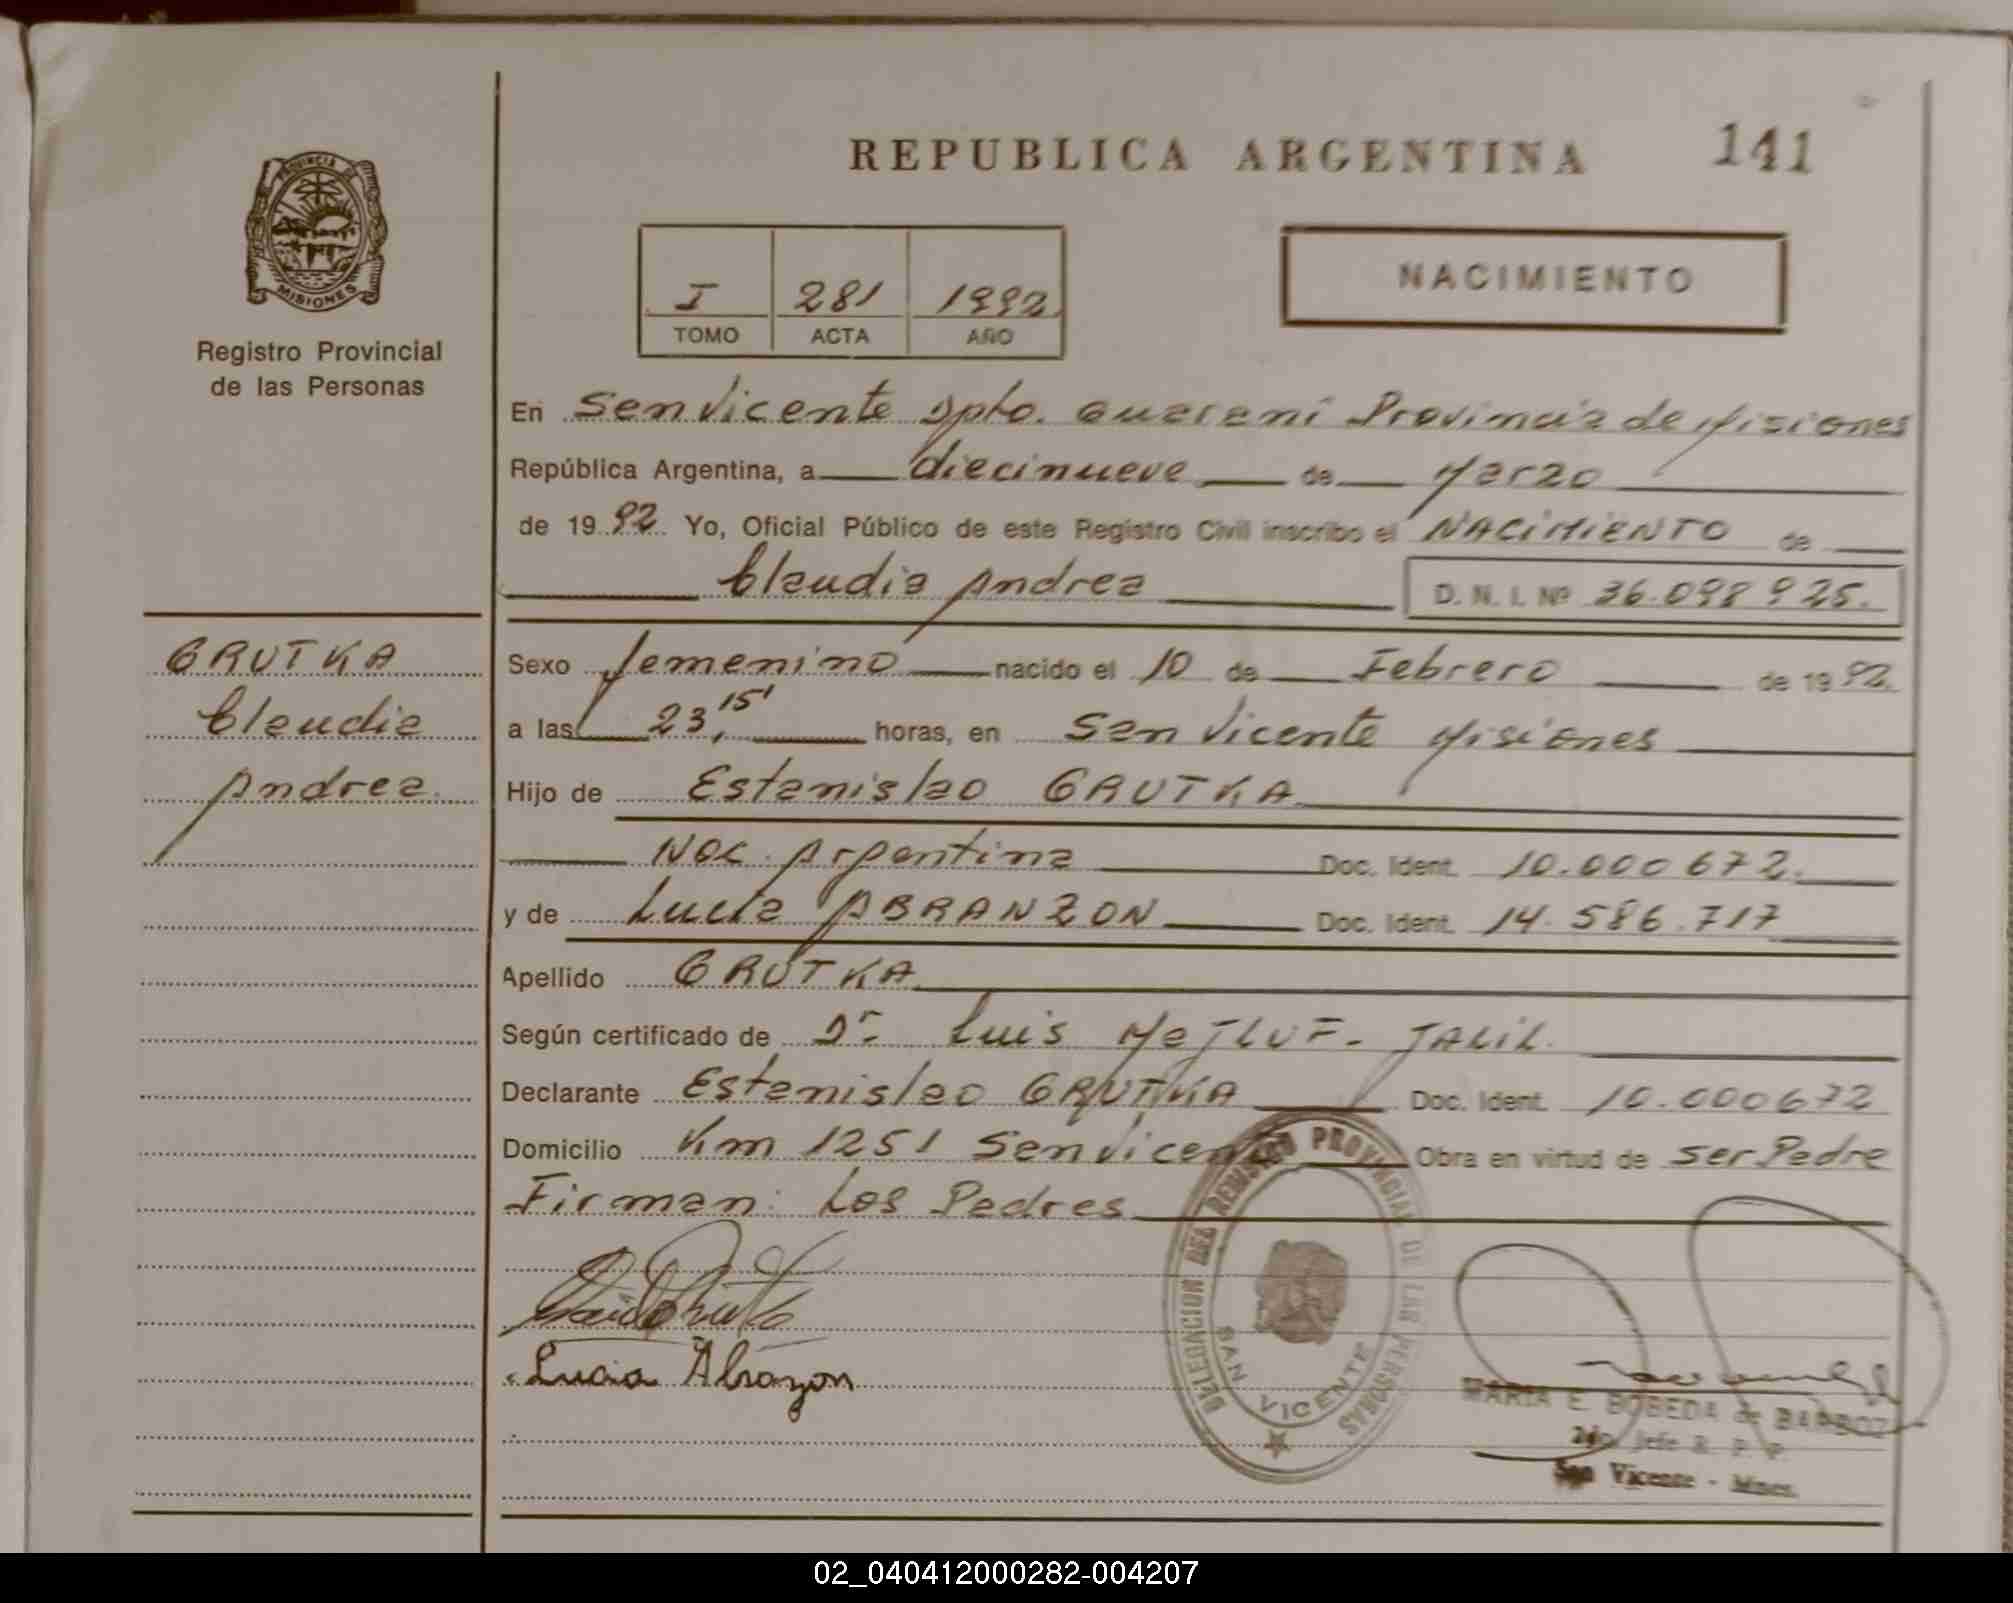 REPUBLICA ARGENTINA 141
PROVINCIA DE
MISIONES
Registro Provincial
de las Personas
I 281 1992
TOMO ACTA AÑO
NACIMIENTO
En San Vicente Dpto. Guaraní Provincia de Misiones
República Argentina, a diecinueve de Marzo
de 1992 Yo, Oficial Público de este Registro Civil inscribo el NACIMIENTO de
Claudia Andrea D. N. I. Nº 36.098 925.
GRUTKA
Claudia
Andrea
Sexo femenino nacido el 10 de Febrero de 1992.
a las 23,15' horas, en San Vicente Misiones
Hijo de Estanislao GRUTKA
Nac. Argentina Doc. Ident. 10.000 672.
y de Lucía ABRANZON Doc. Ident. 14.586.717
Apellido GRUTKA
Según certificado de Dr. Luis MeJLUF - JALIL.
Declarante Estanislao GRUTKA Doc. Ident. 10.000672
Domicilio Km 1251 San Vicente Obra en virtud de ser Padre
Firman: Los Padres
Lucia Abrazon
DELEGACION DEL REGISTRO PROVINCIAL DE LAS PERSONAS
SAN VICENTE
MARIA E. BOBEDA de
2do. Jefe R. P. P.
San Vicente - Mnes.
02_040412000282-004207